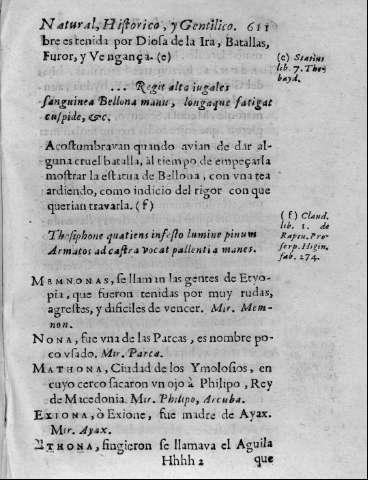 Natural, Historico, y Gentilico. 611
bre es tenida por Diosa de la Ira, Batallas,
Furor, y Vengança. (e)
(e) Statius
lib. 7. The-
bayd.
... Regit alta iugales
sanguinea Bellona manu, longaque fatigat
cuspide, &c.
Acostumbravan quando avian de dar al-
guna cruel batalla, àl tiempo de empeçarla
mostrar la estatua de Bellona, con vna tea
ardiendo, como indicio del rigor con que
querian travarla. (f)
(f) Claud.
lib. 1. de
Raptu. Pro-
serp. Higin.
fab. 274.
Thesiphone quatiens infesto lumine pinum
Armatos ad castra vocat pallentia manes.
MEMNONAS, se llaman las gentes de Etyo-
pia, que fueron tenidas por muy rudas,
agrestes, y dificiles de vencer. Mir. Mem-
non.
NONA, fue vna de las Parcas, es nombre po-
co vsado. Mir. Parca.
MATHONA, Ciudad de los Ymolosios, en
cuyo cerco sacaron vn ojo à Philipo, Rey
de Macedonia. Mir. Philipo, Arcuba.
EXIONA, ò Exione, fue madre de Ayax.
Mir. Ayax.
THONA, fingieron se llamava el Aguila
Hhhh 2 que